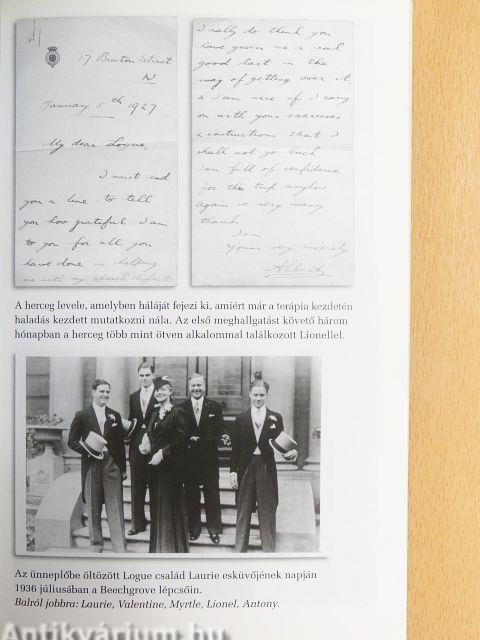 17 Bruton Street
W
January 5th 1927
My dear Logue,
I must send
you a line to tell
you how grateful I am
to you for all you
have done in helping
me with my speech defect
I really do think you
have given me a real
good start in the
way of getting over it
& I am sure if I carry
on with your exercises
& instructions that I
shall not go back
I am full of confidence
for the trip
again so very many
thanks
I am
Yours very sincerely
Albert
A herceg levele, amelyben háláját fejezi ki, amiért már a terápia kezdetén
haladás kezdett mutatkozni nála. Az első meghallgatást követő három
hónapban a herceg több mint ötven alkalommal találkozott Lionellel.
Az ünneplőbe öltözött Logue család Laurie esküvőjének napján
1936 júliusában a Beechgrove lépcsőin.
Balról jobbra: Laurie, Valentine, Myrtle, Lionel, Antony.
Antikvárium.hu